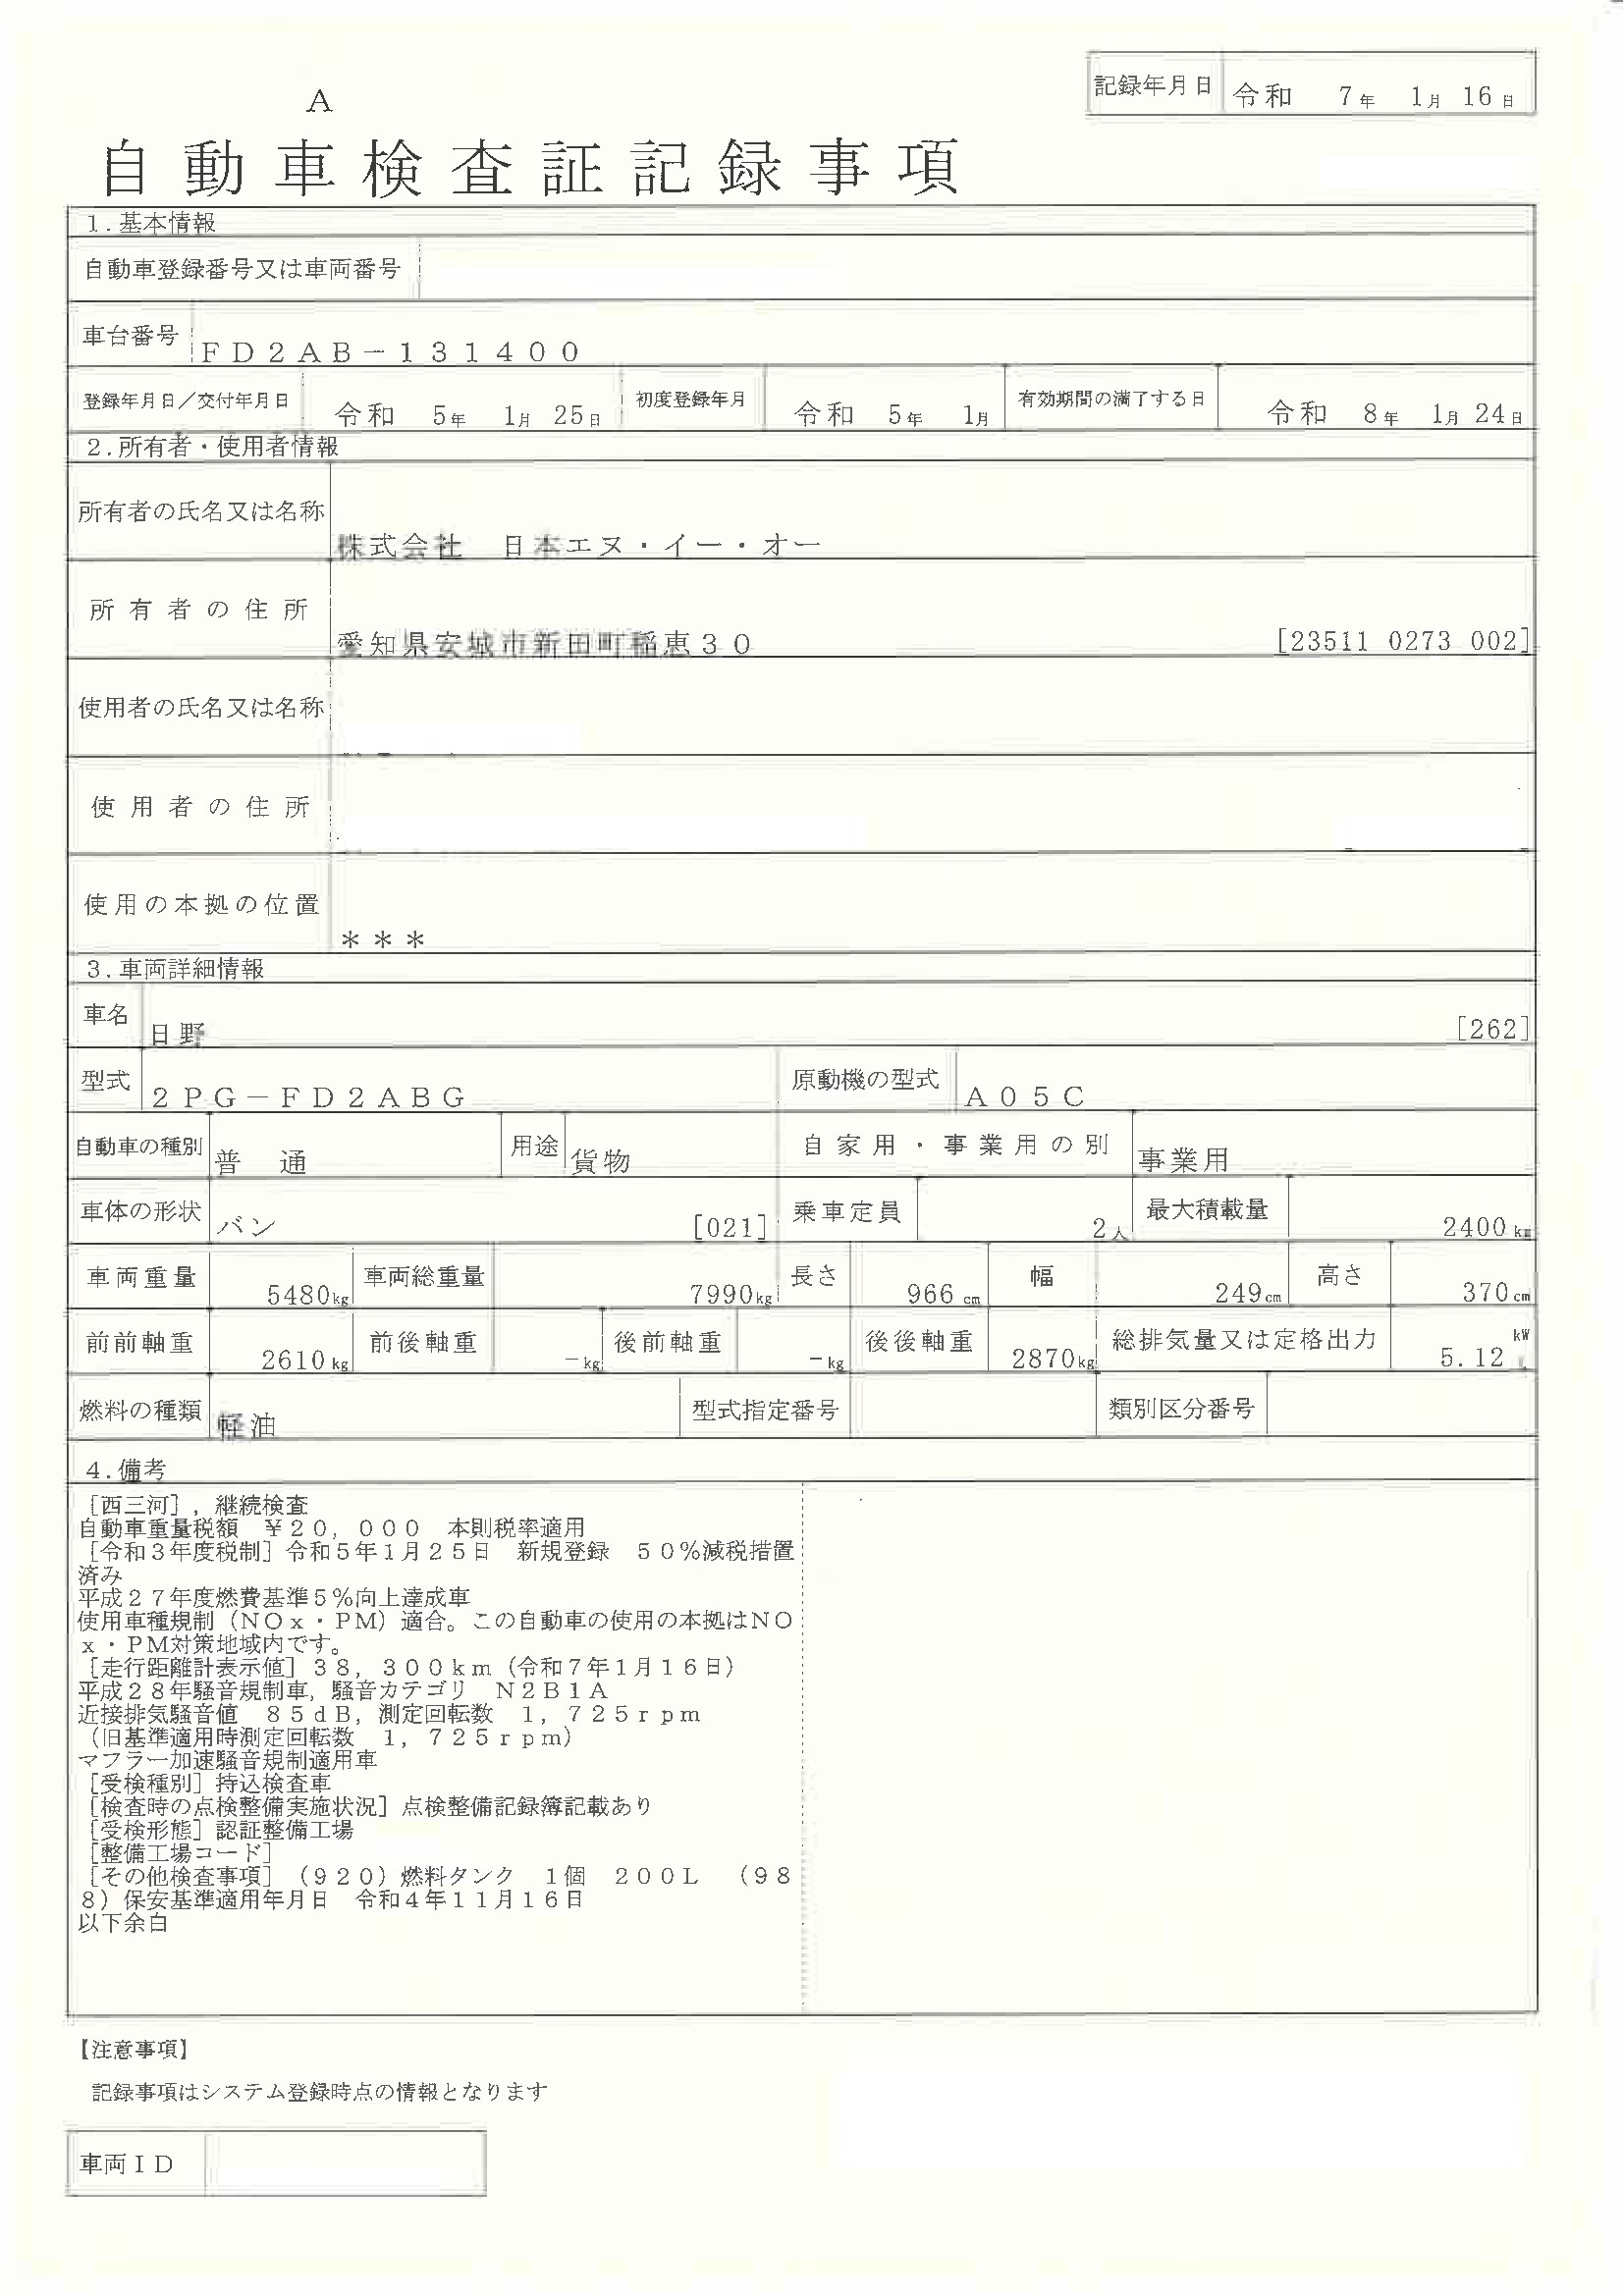 記録年月日 令和 7年 1月 16日
A
自動車検査証記録事項
1.基本情報
自動車登録番号又は車両番号
車台番号 FD2AB-131400
登録年月日/交付年月日 令和 5年 1月 25日 初度登録年月 令和 5年 1月 有効期間の満了する日 令和 8年 1月 24日
2.所有者・使用者情報
所有者の氏名又は名称 株式会社 日本エヌ・イー・オー
所有者の住所 愛知県安城市新田町稲恵30 [23511 0273 002]
使用者の氏名又は名称
使用者の住所
使用の本拠の位置 ***
3.車両詳細情報
車名 日野 [262]
型式 2PG-FD2ABG 原動機の型式 A05C
自動車の種別 普 通 用途 貨物 自家用・事業用の別 事業用
車体の形状 バン [021] 乗車定員 2人 最大積載量 2400kg
車両重量 5480kg 車両総重量 7990kg 長さ 966cm 幅 249cm 高さ 370cm
前前軸重 2610kg 前後軸重 -kg 後前軸重 -kg 後後軸重 2870kg 総排気量又は定格出力 5.12 kW
燃料の種類 軽油 型式指定番号 類別区分番号
4.備考
[西三河],継続検査
自動車重量税額 ¥20,000 本則税率適用
[令和3年度税制]令和5年1月25日 新規登録 50%減税措置
済み
平成27年度燃費基準5%向上達成車
使用車種規制(NOx・PM)適合。この自動車の使用の本拠はNO
x・PM対策地域内です。
[走行距離計表示値]38,300km(令和7年1月16日)
平成28年騒音規制車,騒音カテゴリ N2B1A
近接排気騒音値 85dB,測定回転数 1,725rpm
(旧基準適用時測定回転数 1,725rpm)
マフラー加速騒音規制適用車
[受検種別]持込検査車
[検査時の点検整備実施状況]点検整備記録簿記載あり
[受検形態]認証整備工場
[整備工場コード]
[その他検査事項](920)燃料タンク 1個 200L (98
8)保安基準適用年月日 令和4年11月16日
以下余白
【注意事項】
記録事項はシステム登録時点の情報となります
車両ID